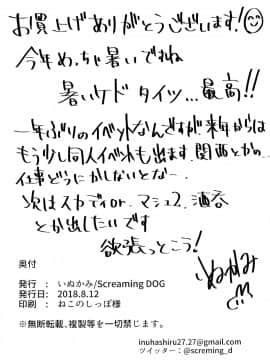 お買上げありがとうございます!
今年めっちゃ暑いですね
暑いケドタイツ…最高!!
一年ぶりのイベントなんですが来年からは
もう少し同人イベントも出ます。関西とかの…
仕事どうにかしないとなー.
次はスカディor.マシュ2.酒呑
とか出したいです
欲張っとこう!
いぬかみ
奥付
発行 : いぬかみ/Screaming DOG
発行日: 2018.8.12
印刷 : ねこのしっぽ様
※無断転載、複製等を一切禁じます。
inuhashiru27.27@gmail.com
ツイッター:@screming_d